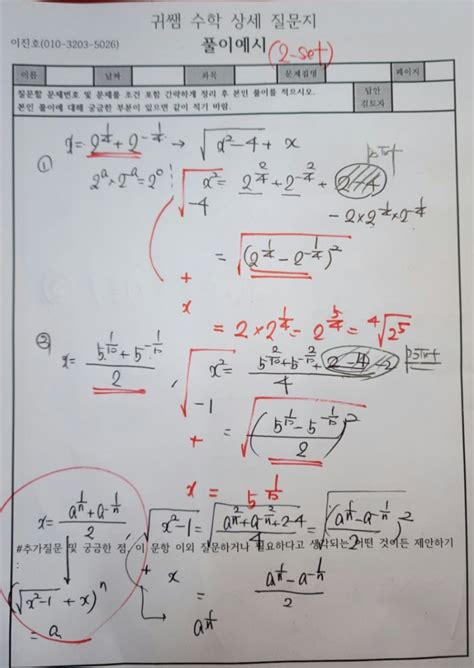 귀쌤 수학 상세 질문지
이진호(010-3203-5026)
풀이예시 (2-set)
이름 날짜 과목 문제집명 페이지
질문할 문제번호 및 문제를 조건 포함 간략하게 정리 후 본인 풀이를 적으시오.
본인 풀이에 대해 궁금한 부분이 있으면 같이 적기 바람.
답안
검토자
① x = 2^{1/4} + 2^{-1/4} → √(x²-4) + x
2^a × 2^{-a} = 2^0
√ x² = 2^{2/4} + 2^{-2/4} + 2-4
-4
- 2×2^{1/4}×2^{-1/4}
= √(2^{1/4} - 2^{-1/4})²
+
x
= 2×2^{1/4} = 2^{5/4} = ⁴√2⁵
② x = (5^{1/10} + 5^{-1/10})/2 , √ x² = (5^{2/10} + 5^{-2/10} + 2-4 -2)/4
-1
= √((5^{1/10} - 5^{-1/10})/2)²
+
x = 5^{1/10}
x = (a^{1/n} + a^{-1/n})/2
√(x²-1) = √((a^{2/n} + a^{-2/n} + 2-4)/4) = √((a^{1/n} - a^{-1/n})/2)²
#추가질문 및 궁금한 점, 이 문항 이외 질문하거나 필요하다고 생각되는 어떤 것이든 제안하기
+ x = (a^{1/n} - a^{-1/n})/2
(√(x²-1) + x)^n
→ a^{1/n}
= a